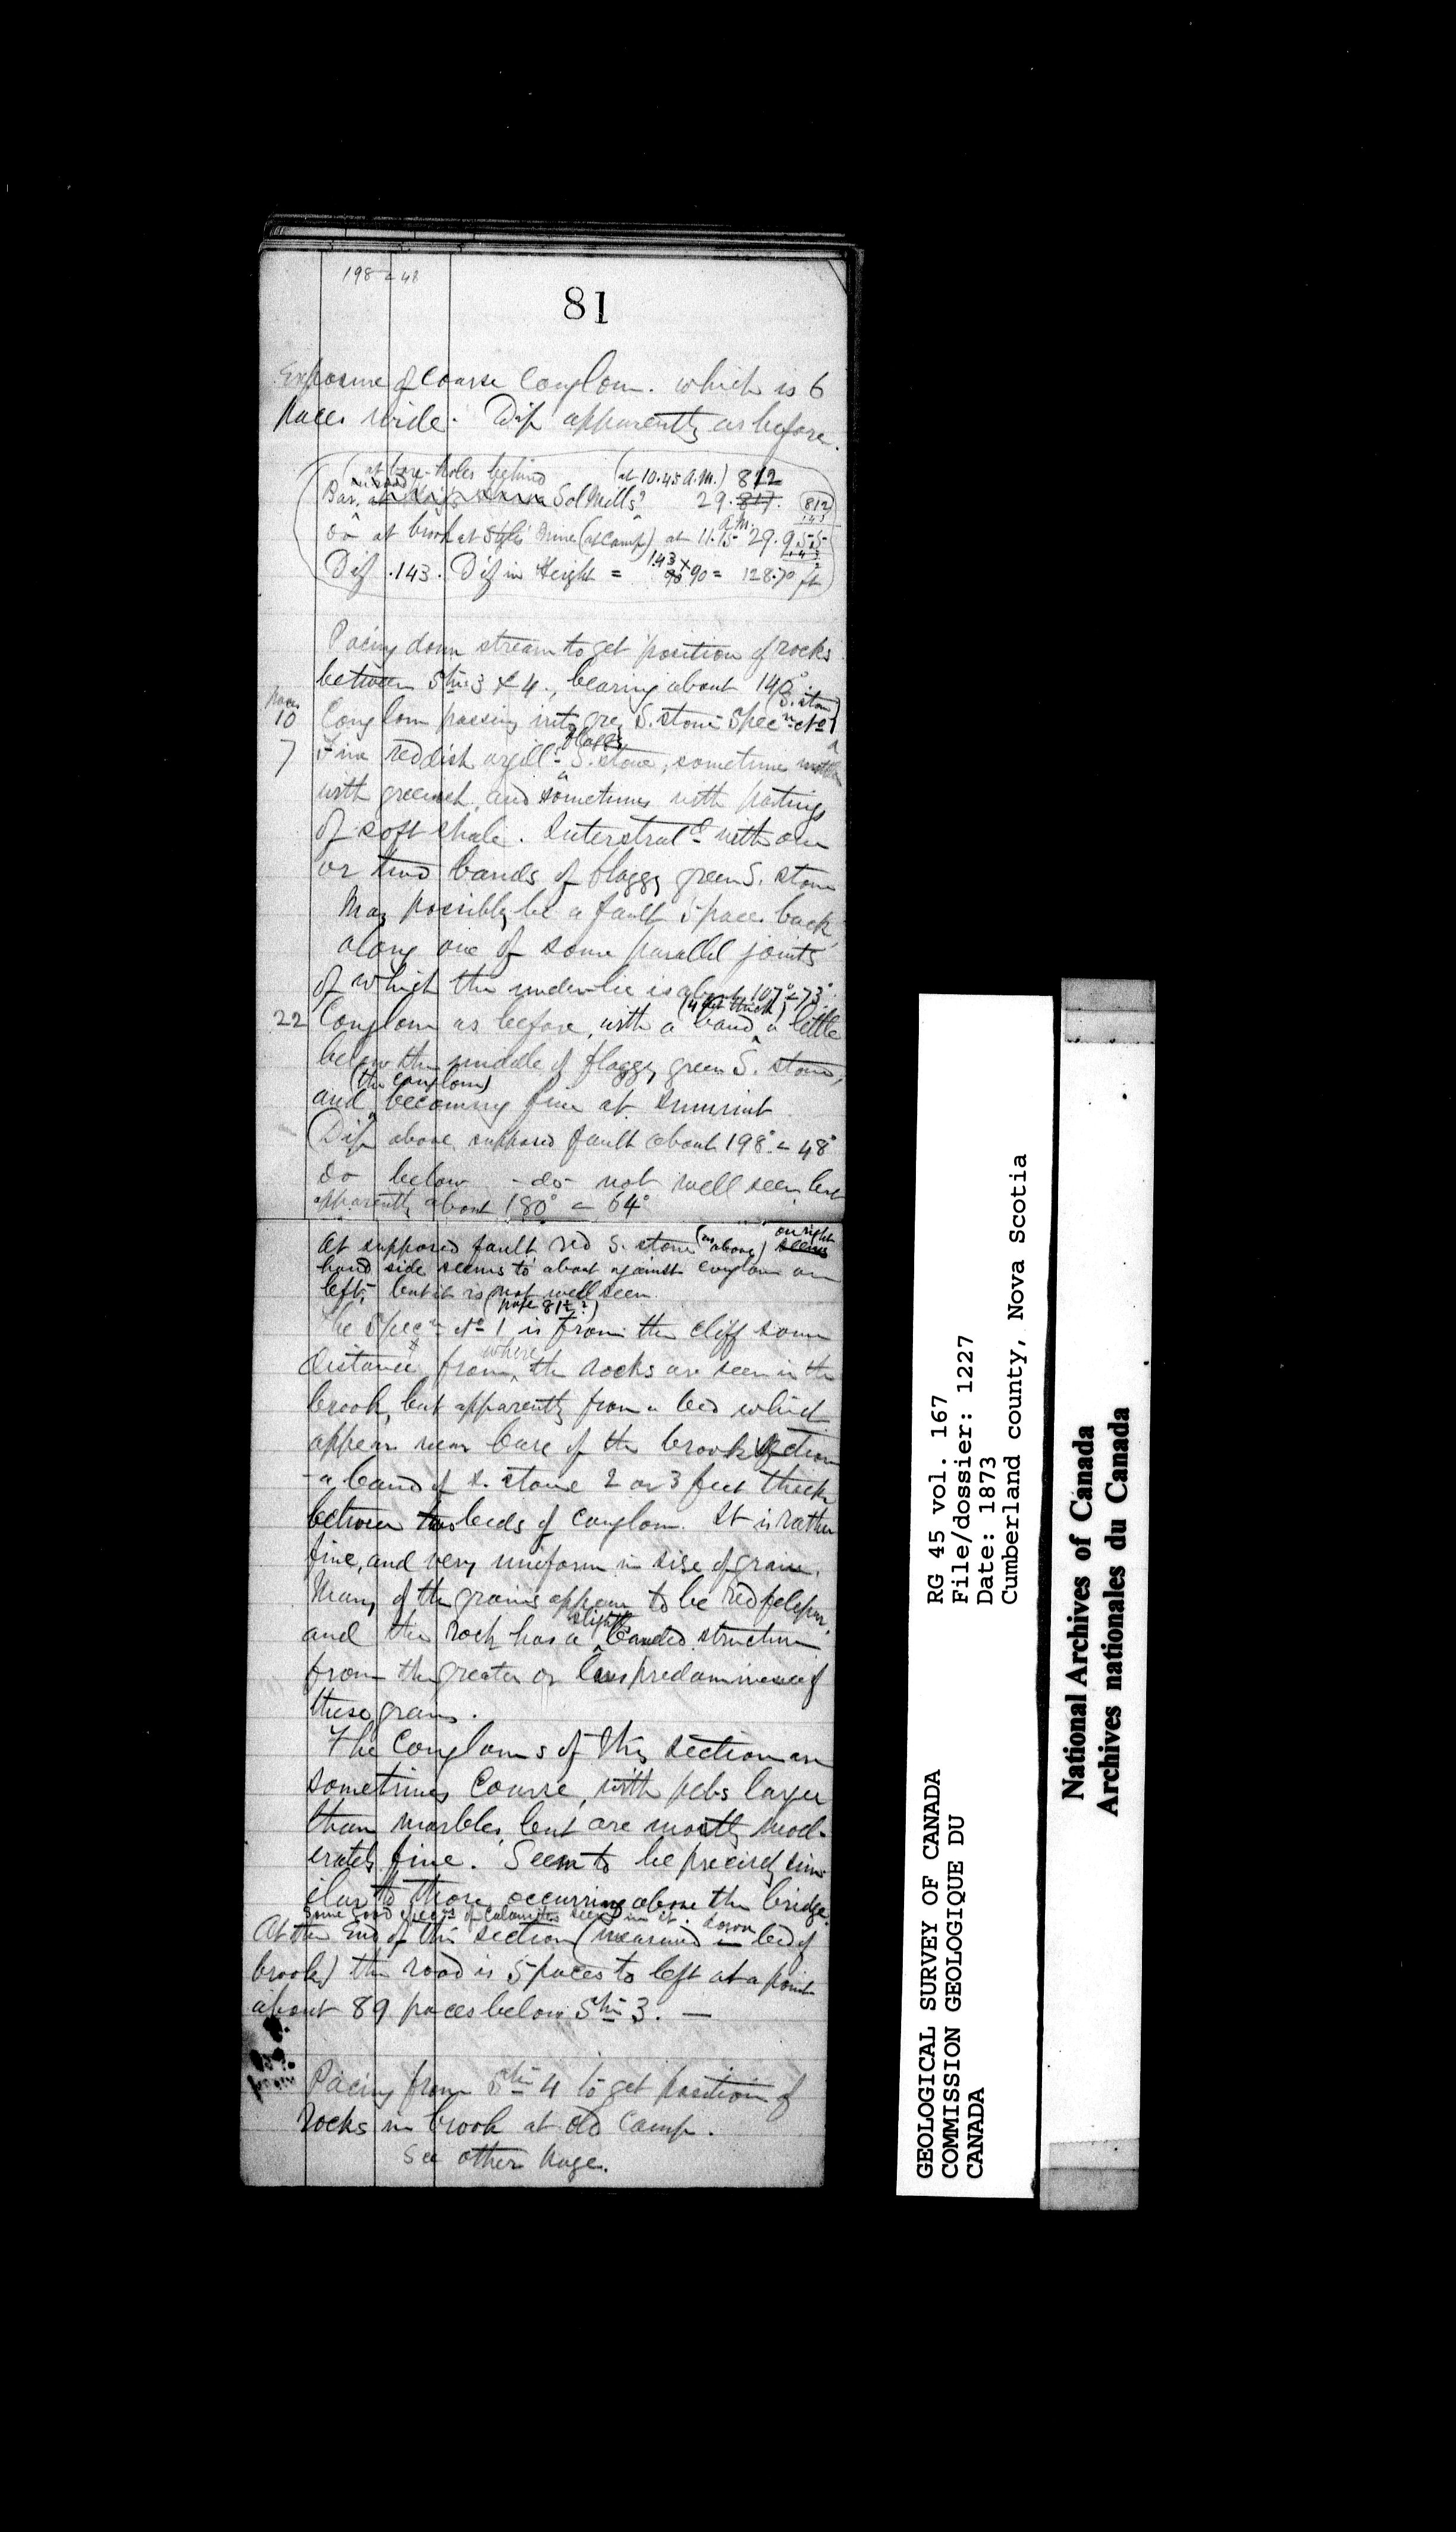 198 ∠ 48
81
Exposure of Coarse Conglom. which is 6
paces wide. Dip apparently as before.
(at bore-holes behind (at 10.45 A.M.) 812
Bar. Sol Mills' 29. 817. 812
143
do at brook at Styles' Mine (at camp) at 11.15 A.M. 29.955
143
Dif .143. Dif in Height = 143 × 90 = 128.70 ft
Pacing down stream to get position of rocks
between Stns 3 & 4, bearing about 140°
paces (S. stone)
10 Conglom passing into grey S. stone Specn No 1
flaggy
7 Fine reddish argill: S. stone, sometimes
with greenish, and sometimes with partings
of soft shale. Interstratd with one
or two bands of flaggy green S. stone
May possibly be a fault 5 paces back,
along one of some parallel joints
of which the underlie is about 107° ∠ 73°.
(4 feet thick)
22 Conglom as before, with a band a little
below the middle of flaggy green S. stone,
(the conglom)
and becoming fine at summit
(Dip above supposed fault about 198° ∠ 48°
do below -do- not well seen, but
apparently about 180° ∠ 64°
At supposed fault, red S. stone (as above) on right seems
hand side seems to about against conglom on
left, but it is not well seen.
(page 81½?)
The Specn No 1 is from the cliff some
distance from where the rocks are seen in the
brook, but apparently from a bed which
appears near base of the brook section
- a band of S. stone 2 or 3 feet thick
between two beds of conglom. It is rather
fine, and very uniform in size of grain.
Many of the grains appear to be red felspar,
slightly
and the rock has a banded structure
from the greater or less predominence of
these grains.
The Congloms of this section are
sometimes Coarse, with pebs larger
than marbles, but are mostly mod-
erately fine. Seem to be precisely sim-
ilar to those occurring above the bridge.
Some good specns of Calamites seen in it. down
At the End of this section (measured in bed of
brook) the road is 5 paces to left at a point
about 89 paces below Stn 3. —
Pacing from Stn 4 to get position of
rocks in brook at old Camp.
See other page.
GEOLOGICAL SURVEY OF CANADA
COMMISSION GEOLOGIQUE DU
CANADA
RG 45 vol. 167
File/dossier: 1227
Date: 1873
Cumberland county, Nova Scotia
National Archives of Canada
Archives nationales du Canada